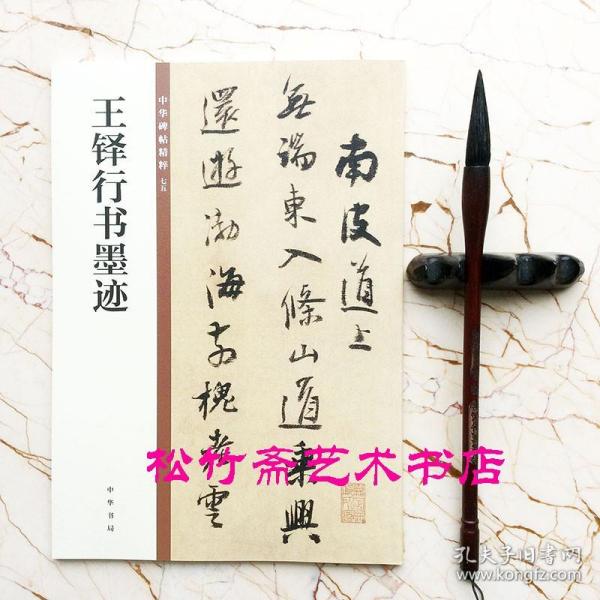 王铎行书墨迹
中华碑帖精粹 七五
中华书局
南皮道上
無端東入條山道乘興
還遊渤海
槐
雲
松竹斋艺术书店
孔夫子旧书网
www.kongfz.com